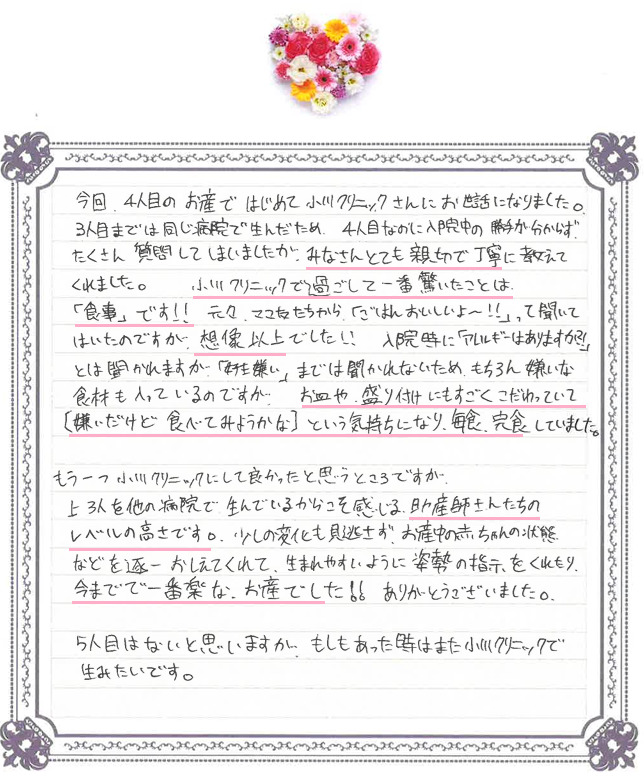 今回、4人目のお産ではじめて小川クリニックさんにお世話になりました。
3人目までは同じ病院で生んだため、4人目なのに入院中の勝手が分からず、
たくさん質問してしまいましたが、みなさんとても親切で丁寧に教えて
くれました。 小川クリニックで過ごして一番驚いたことは、
「食事」です!! 元々、ママ友たちから、「ごはんおいしいよ〜!!」って聞いて
はいたのですが、想像以上でした!! 入院時に「アレルギーはありますか?」
とは聞かれますが、「好き嫌い」までは聞かれないため、もちろん嫌いな
食材も入っているのですが、お皿や、盛り付けにもすごくこだわっていて
[嫌いだけど食べてみようかな]という気持ちになり、毎食、完食していました。
もう一つ小川クリニックにして良かったと思うところですが、
上3人を他の病院で生んでいるからこそ感じる、助産師さんたちの
レベルの高さです。少しの変化も見逃さず、お産中の赤ちゃんの状態
などを逐一おしえてくれて、生まれやすいように姿勢の指示をくれたり、
今までで一番楽な、お産でした!! ありがとうございました。
5人目はないと思いますが、もしもあった時はまた小川クリニックで
生みたいです。